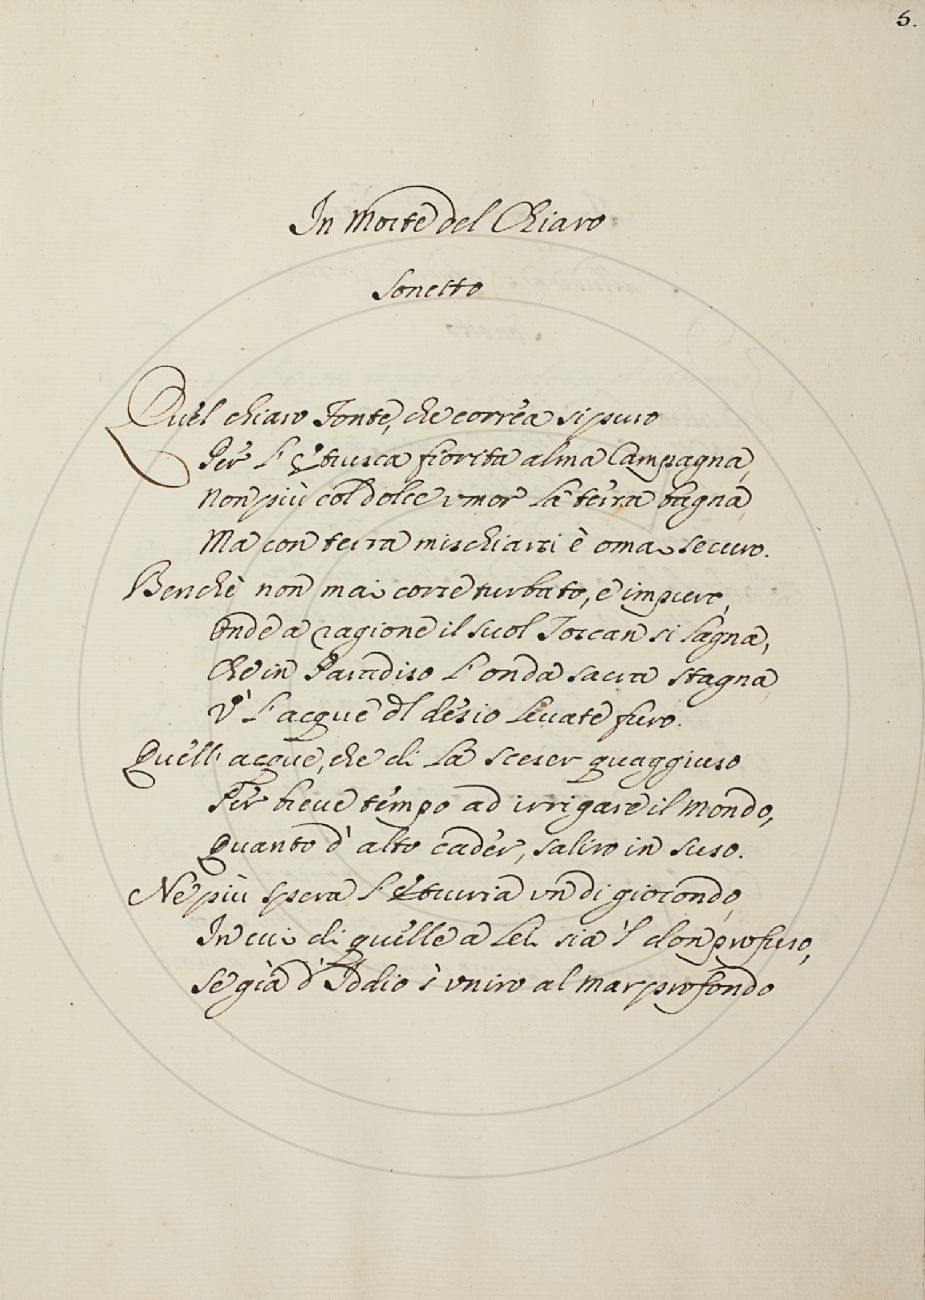 5.
In Morte del Chiaro
Sonetto
Quel chiaro Fonte, che correa si puro
Per l'Etrusca fiorita alma Campagna,
Non più col dolce umor la terra bagna,
Ma con terra mischiarsi è omai securo.
Benchè non mai corre turbato, e impuro,
Onde a ragione il suol Toscan si lagna,
Che in Paradiso l'onda sacra stagna,
V' l'acque dl desio levate furo.
Quell' acque, che di là sceser quaggiuso
Per breve tempo ad irrigare il Mondo,
Quanto d' alto cader, saliro in suso.
Ne più spera l'Etruria un di giocondo,
In cui di quelle a Lei sia 'l don profuso,
Se già d' Iddio s' uniro al mar profondo